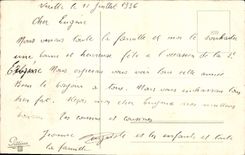 le 11 Juillet 1936
Cher Eugène
Nous venons toute la famille et moi te souhaiter
une bonne et heureuse fête à l'occasion de la St
Eugène Nous espérons vous voir tous cette année
Dans le bonjour à tous. Nous vous embrassons tous
bien fort. Reçois mon cher Eugène nos meilleurs
baisers les cousins et cousines
Jeanne et les enfants et toute
la famille